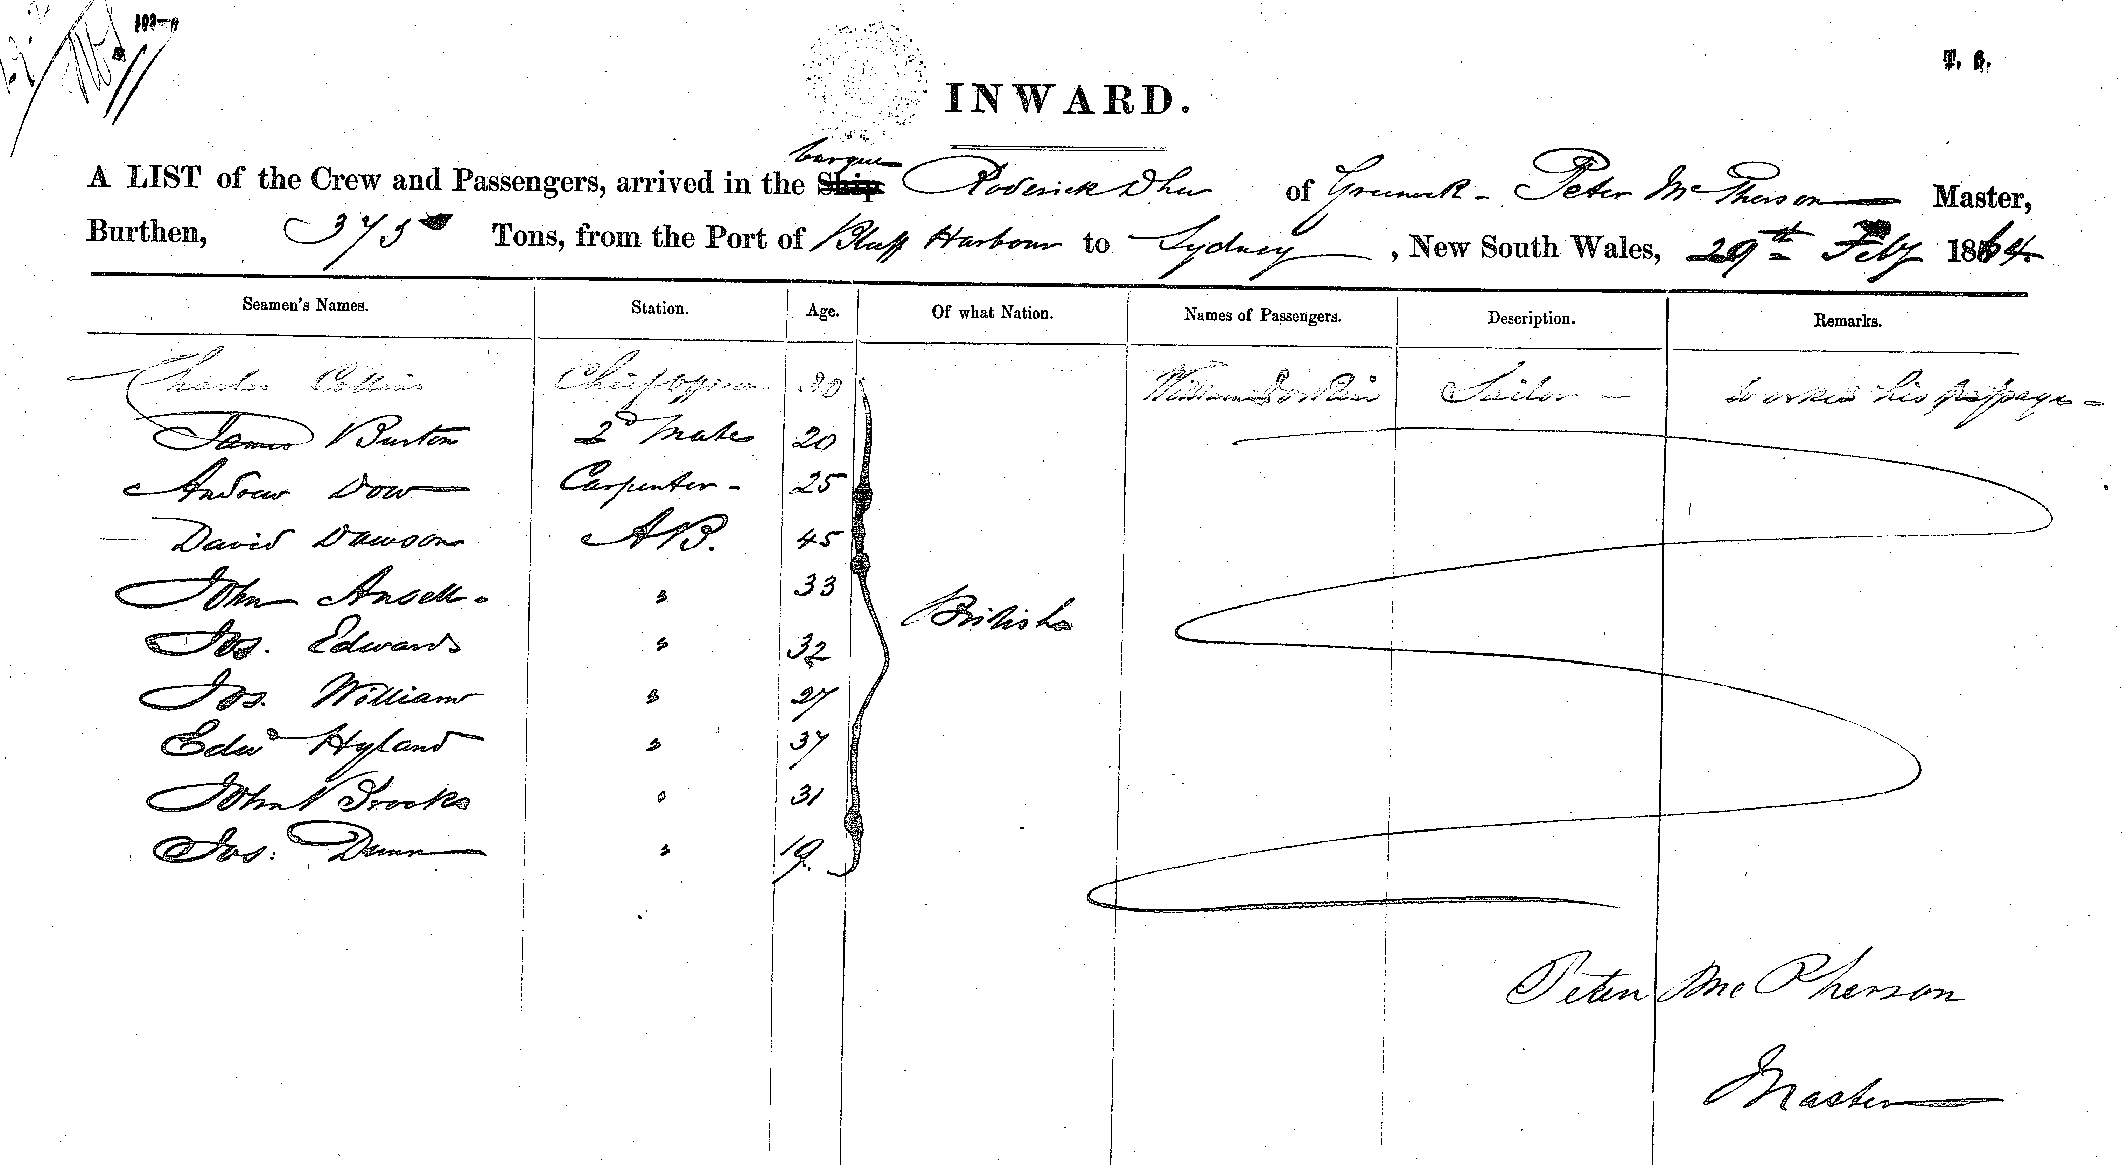 INWARD.
T. B.
barque
A LIST of the Crew and Passengers, arrived in the Ship Roderick Dhu of Greenock - Peter McPherson Master,
Burthen, 375 Tons, from the Port of Bluff Harbour to Sydney, New South Wales, 29th Feby 1864.
Seamen's Names. Station. Age. Of what Nation. Names of Passengers. Description. Remarks.
Charles Collins Chief officer William Sailor - worked his passage -
James Burton 2d Mate 20
Andrew Dow Carpenter - 25
David Dawson AB. 45
John Ansell - " 33
British
Jos. Edwards " 32
Jos. William " 27
Edwd Hyland " 37
John Brooks " 31
Jos: Dunn " 19.
Peter McPherson
Master